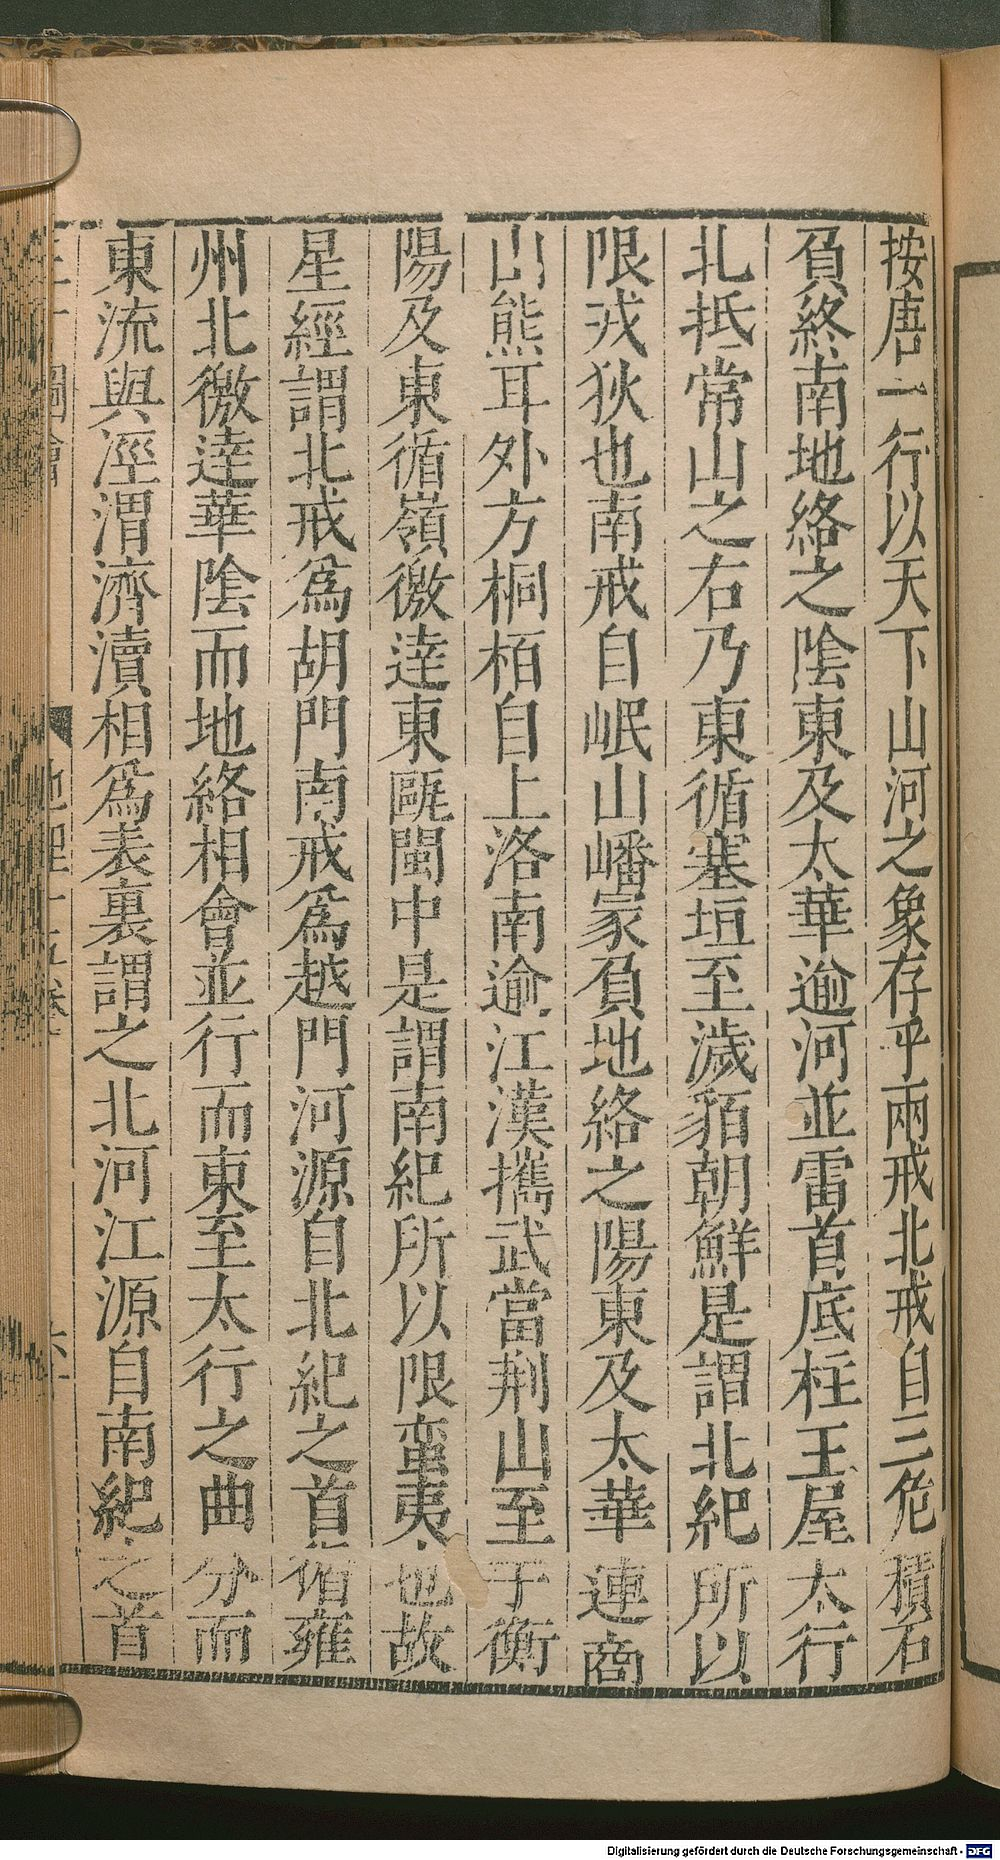 按唐一行以天下山河之象存乎兩戒北戒自三危積石
負終南地絡之陰東及太華逾河並雷首底柱王屋太行
北抵常山之右乃東循塞垣至濊貊朝鮮是謂北紀所以
限戎狄也南戒自岷山嶓冢負地絡之陽東及太華連商
山熊耳外方桐栢自上洛南逾江漢攜武當荆山至于衡
陽及東循嶺徼達東甌閩中是謂南紀所以限蠻夷也故
星經謂北戒爲胡門南戒爲越門河源自北紀之首循雍
州北徼達華陰而地絡相會並行而東至太行之曲分而
東流與涇渭濟瀆相爲表裏謂之北河江源自南紀之首
圖會
地理十五卷
Digitalisierung gefördert durch die Deutsche Forschungsgemeinschaft - DFG